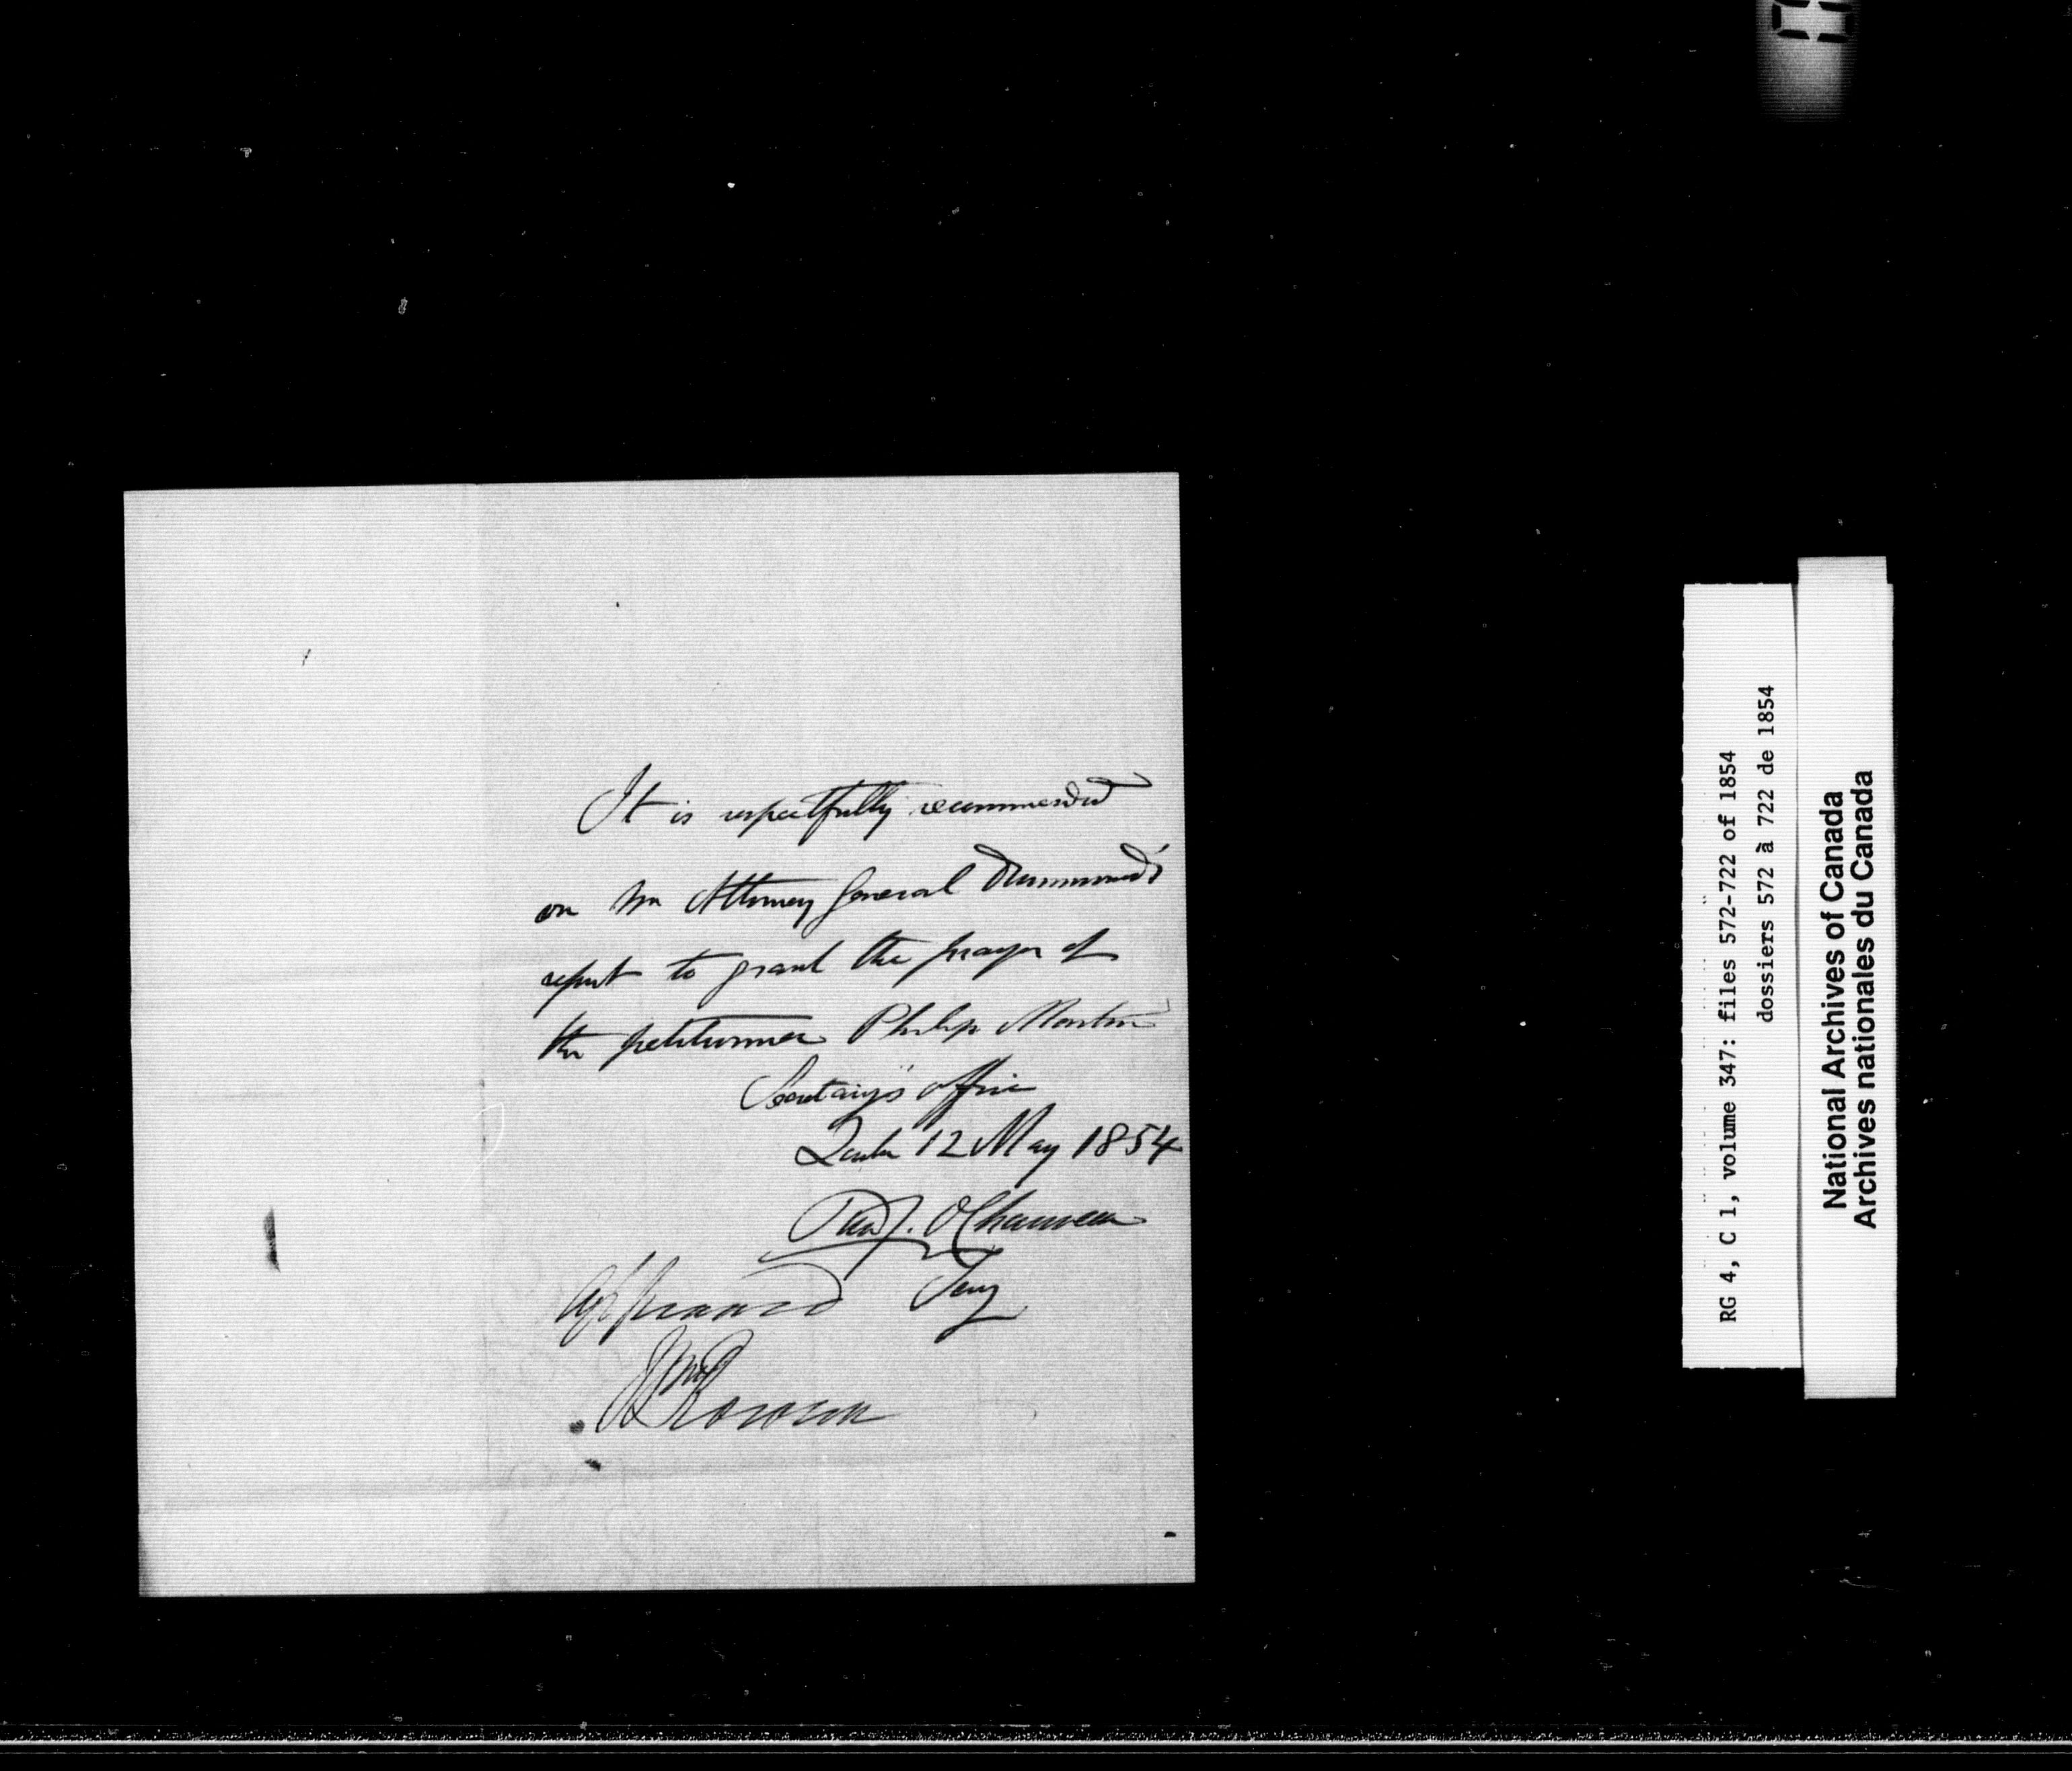 It is respectfully recommended
on Mr Attorney General Drummond's
report to grant the prayer of
the petitioner Philip Martin
Secretary's office
Quebec 12 May 1854
Pierre J. O Chauveau
Secy
Approved
Wm Rowan
RG 4, C 1, volume 347: files 572-722 of 1854
dossiers 572 à 722 de 1854
National Archives of Canada
Archives nationales du Canada